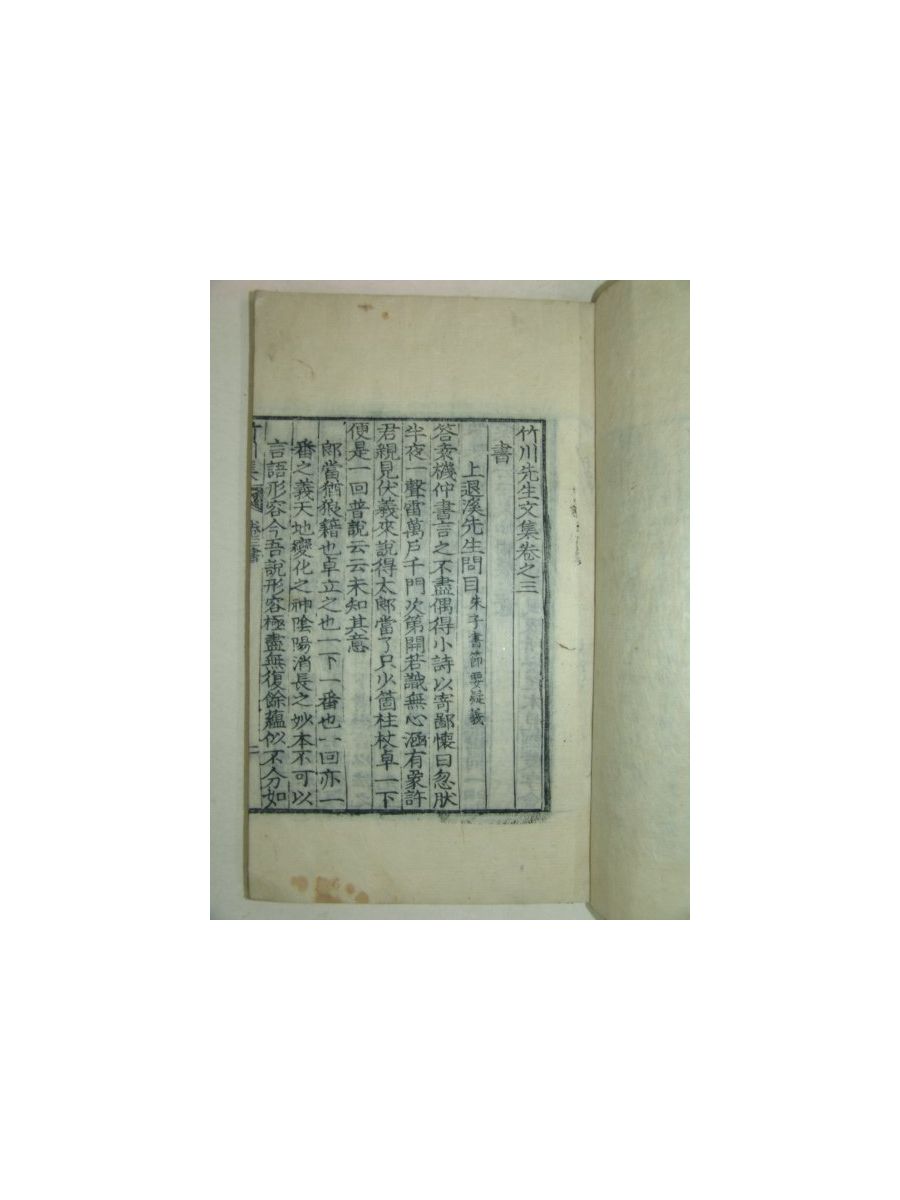 竹川先生文集卷之三
書
上退溪先生問目朱子書節要疑義
答袁機仲書言之不盡偶得小詩以寄鄙懷曰忽肰
半夜一聲雷萬戶千門次第開若識無心涵有象許
君親見伏羲來說得太郎當了只少箇柱杖卓一下
便是一回普說云云未知其意
郎當猶狼籍也卓立之也一下一番也一回亦一
番之義天地變化之神陰陽消長之妙本不可以
言語形容今吾說形容極盡無復餘蘊似不分如
竹川集 卷三 書